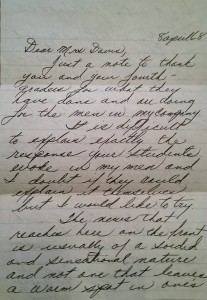 8 April 68
Dear Mrs Davis,
Just a note to thank
you and your fourth-
graders for what they
have done and are doing
for the men in my company
It is difficult
to explain exactly the
response your students
evoke in my men and
I doubt if they could
explain it themselves
but I would like to try
The news that
reaches here on the front
is usually of a sordid
and sensational nature
and not one that leaves
a warm spot in ones